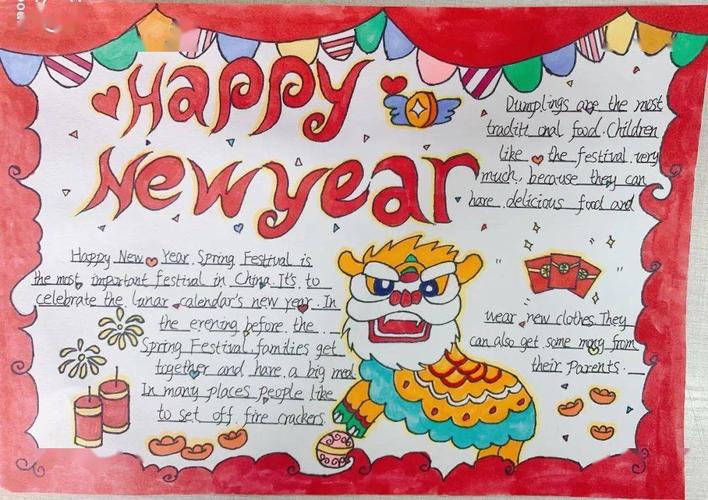 Happy
New year
Happy New Year. Spring Festival is
the most important festival in China. It's to
celebrate the lunar calendar's new year. In
the evening before the
Spring Festival, families get
together and have a big meal.
In many places people like
to set off fire crackers.
Dumplings are the most
traditi onal food. Children
like the festival very
much, because they can
have delicious food and
wear new clothes. They
can also get some mony from
their parents.